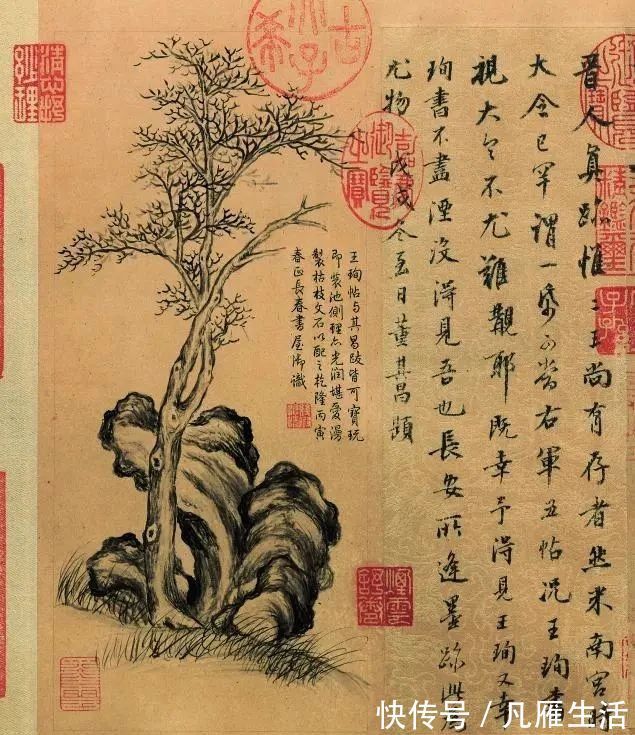 晉人真跡惟二王尚有存者然米南宮時
大令已罕謂一紙可當右軍五帖況王珣書
視大令不尤難覯耶既幸予得見王珣又幸
珣書不盡湮沒得見吾也長安所逢墨跡此為
尤物 戊戌冬至日董其昌題
王珣帖與其昌跋皆可寶玩
即裝池側理亦光潤堪愛漫
製枯枝文石以配之乾隆丙寅
春正長春書屋御識
古希天子
嘉慶御覽之寶
快传号 / 凡雁生活